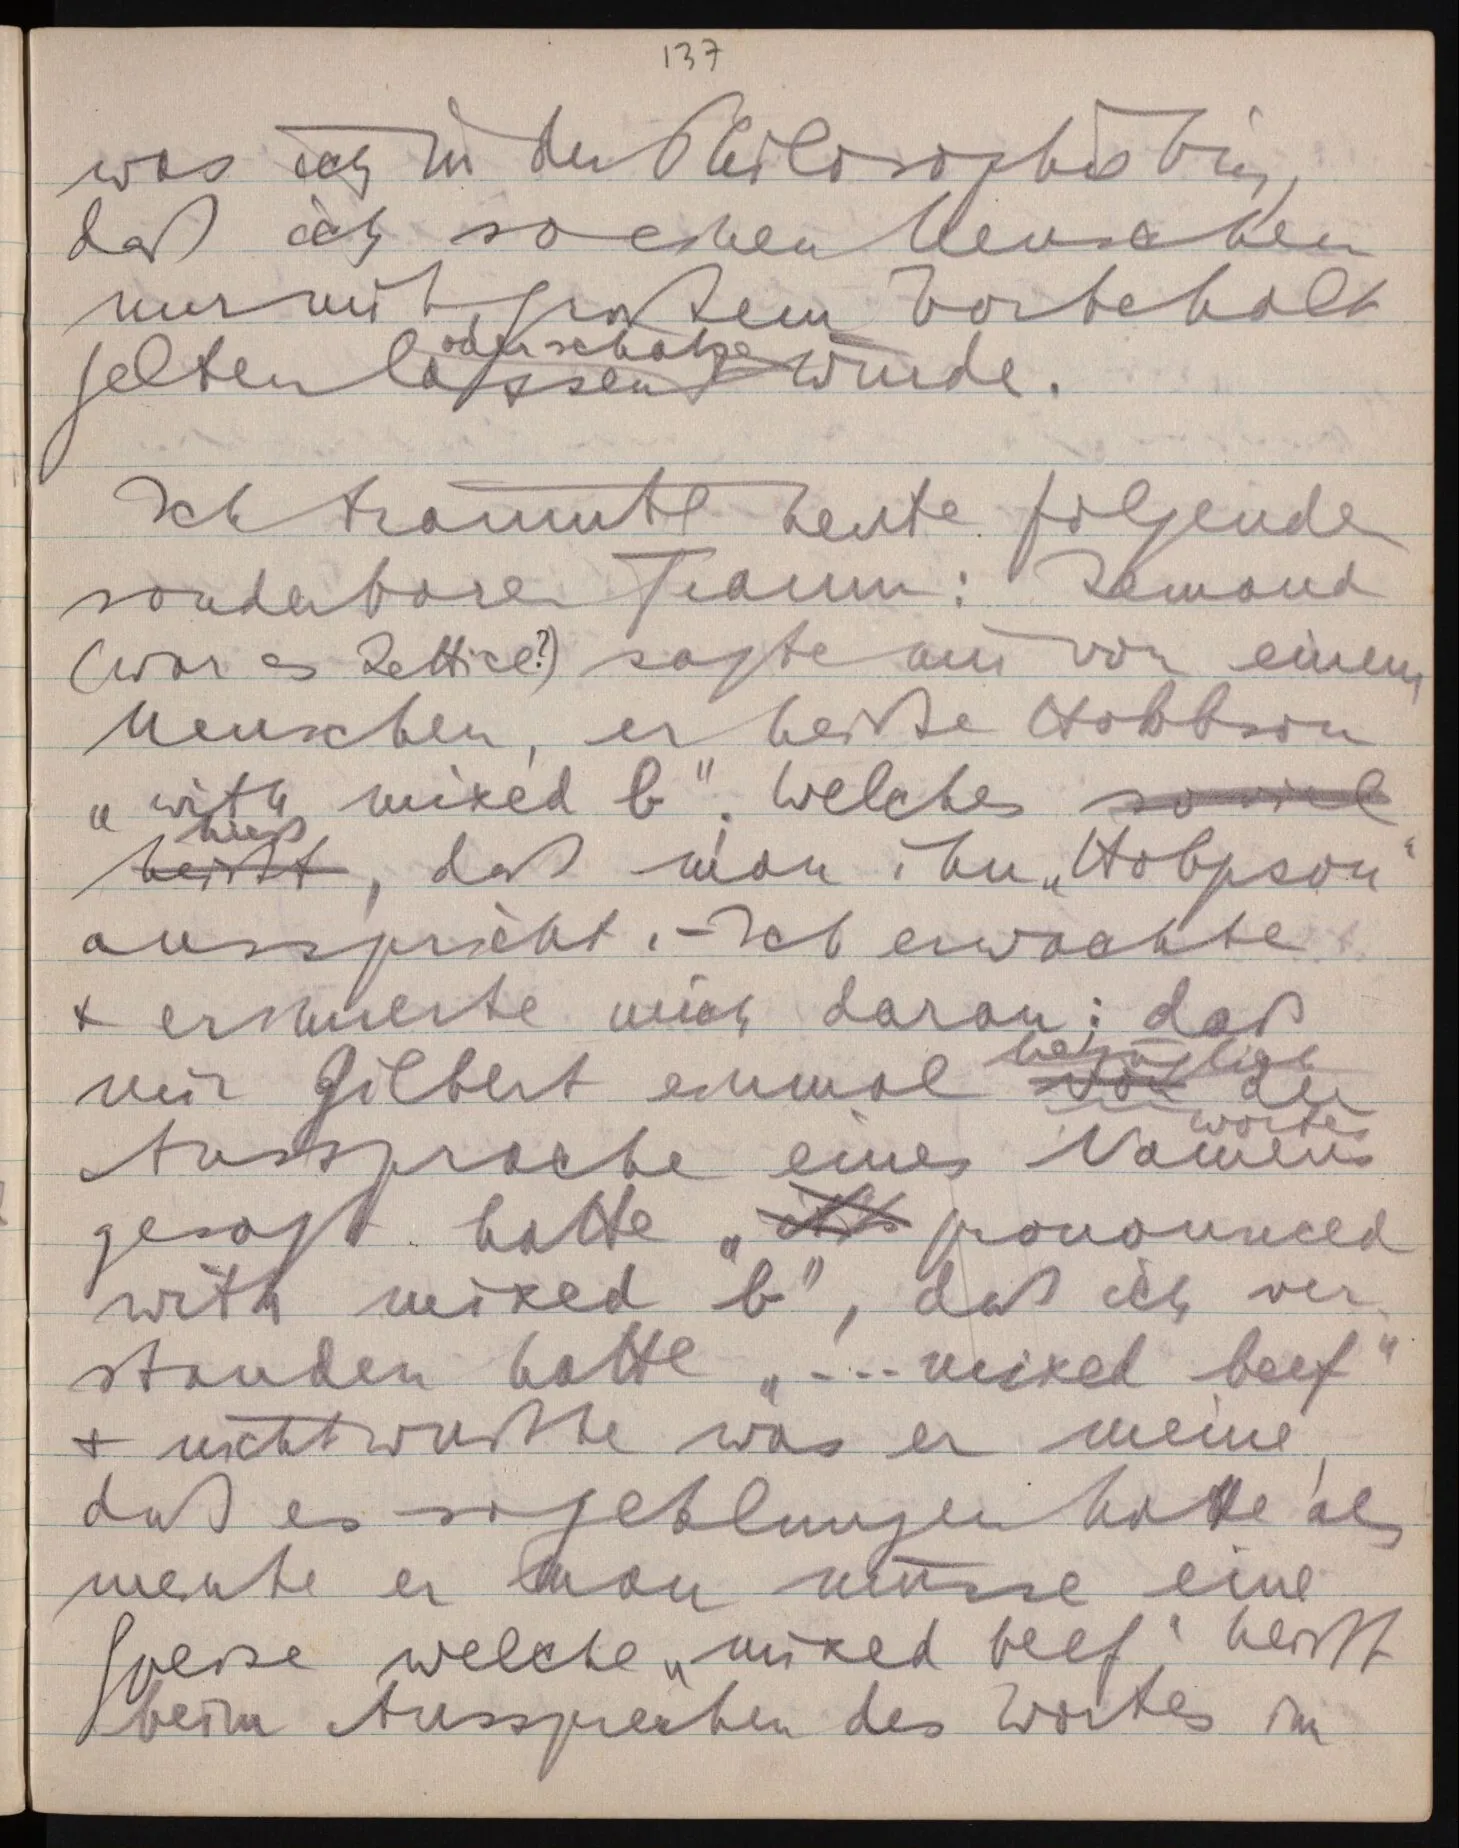 137
was ich in der Philosophie bin,
daß ich so einen Menschen
nur mit großem Vorbehalt
oder schätze
gelten lassen würde.
Ich träumte heute folgenden
sonderbaren Traum: Jemand
(war es Lettice?) sagte mir von einem
Menschen, er heiße Hobbson
„with mixed b"; welches soviel
hieß
heißt, daß man ihn „Hobpson"
ausspricht. – Ich erwachte
+ erinnerte mich daran; daß
bezüglich
mir Gilbert einmal von der
Wortes
Aussprache eines Namens
gesagt hatte „it's pronounced
with mixed b", daß ich ver-
standen hatte „... mixed beef"
+ nicht wußte was er meine,
daß es so geklungen hatte als
meinte er man müsse eine
Speise welche „mixed beef" heißt
beim Aussprechen des Wortes im